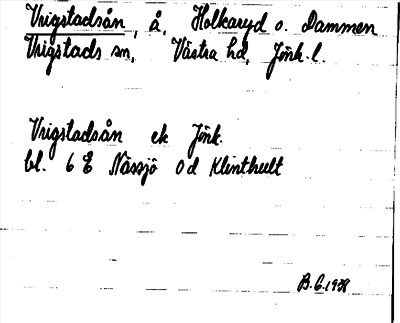 Vrigstadsån, å, Holkaryd o. Dammen
Vrigstads sn, Västra hd, Jönk. l.
Vrigstadsån ek Jönk.
bl. 6 E Nässjö 0d Klinthult
B.G. 1958